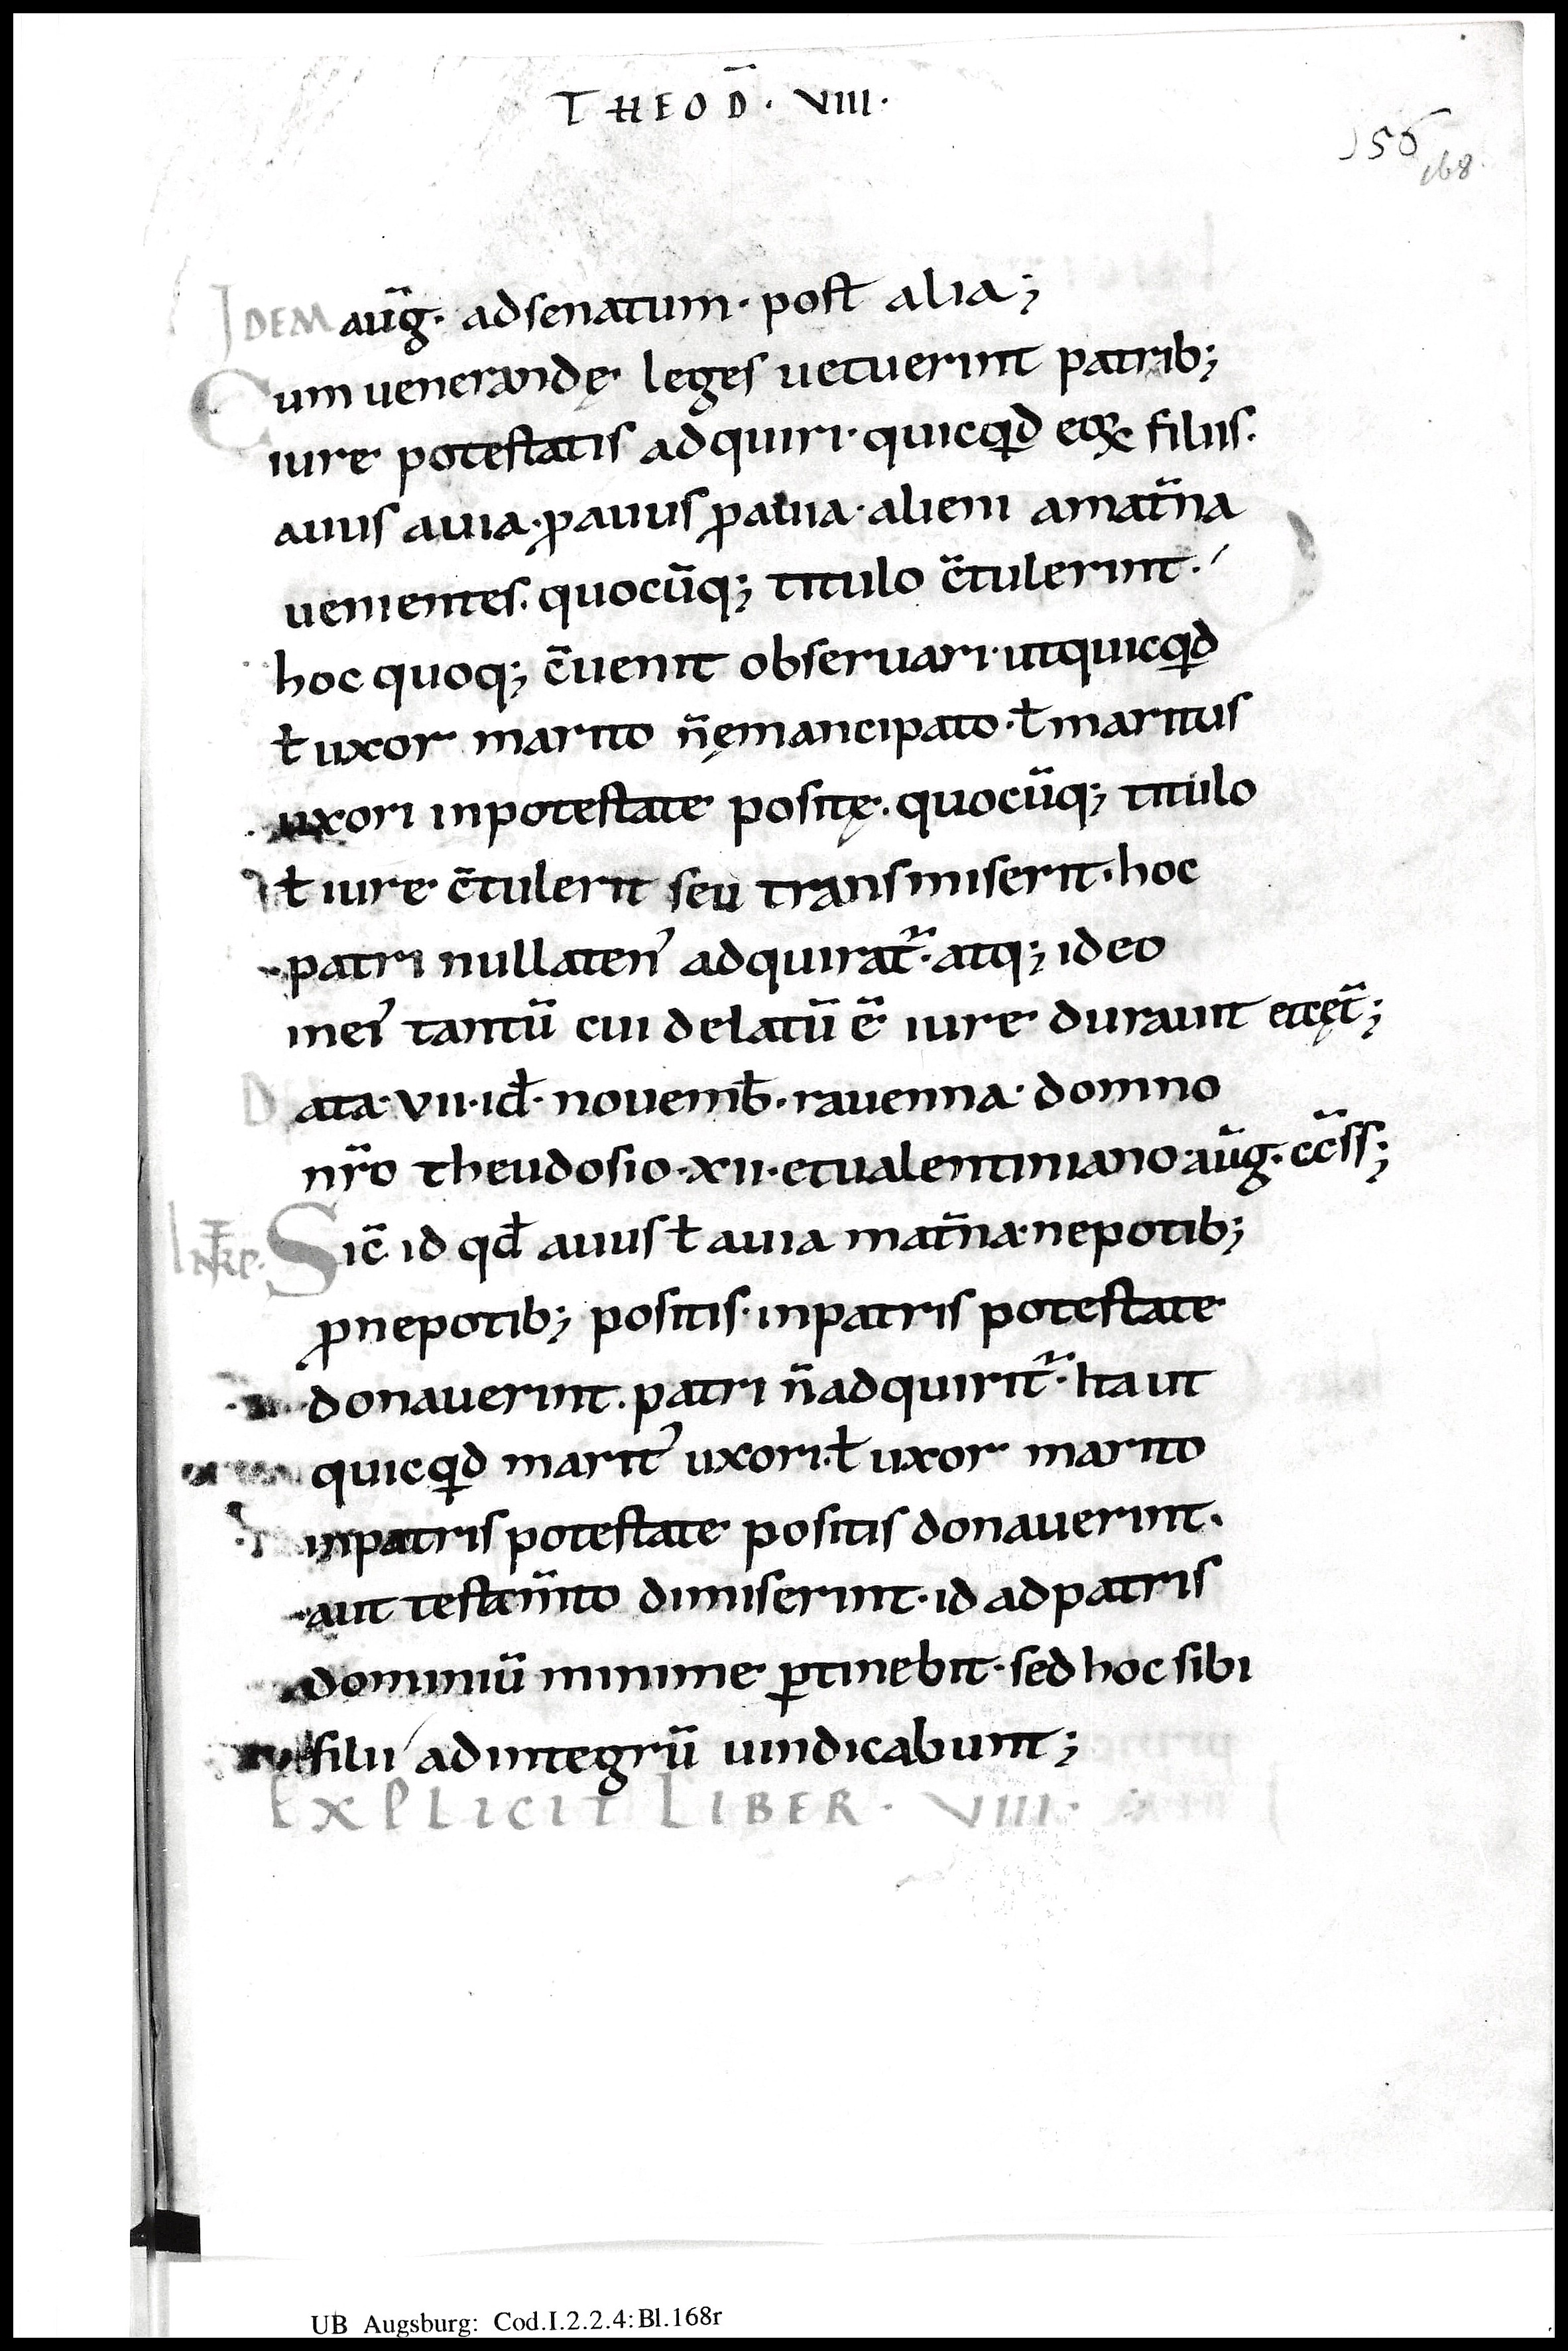 THEOD̄. VIII.
155
168
IDEM aūg. adsenatum. post alia;
Cum uenerandę leges uetuerint patrib;
iure potestatis adquiri. quicqđ eoꝝ filiis.
auus auia. ꝓauus ꝓauia. alieni amat̄na
uenientes. quocūq; titulo c̄tulerint.
hoc quoq; c̄uenit obseruari. utquicqđ
ƚ uxor marito n̄ęmancipato. ƚ maritus
uxori inpotestate positę. quocūq; titulo
ƚ iure c̄tulerit seu transmiserit. hoc
patri nullaten᾿ adquirat̄. atq; ideo
inei᾿ tantū cui delatū ē iure durauit etcęt̄;
Data. VII. iđ. nouemƀ. rauenna. domno
nr̄o theudosio. XII. etualentiniano. aūg. cc̄ss;
Int̄p̄. Sic̄ id qđ auus ƚ auia mat̄na. nepotib;
ꝓnepotib; positis. inpatris potestate
donauerint. patri n̄adquirit̄. Ita ut
quicqđ marit᾿ uxori. ƚ uxor marito
inpatris potestate positis donauerint.
aut testam̄to dimiserint. id adpatris
dominiū minime ꝑtinebit. sed hoc sibi
filii adintegrū uindicabunt;
EXPLICIT LIBER. VIII.
UB Augsburg: Cod.I.2.2.4:Bl.168r